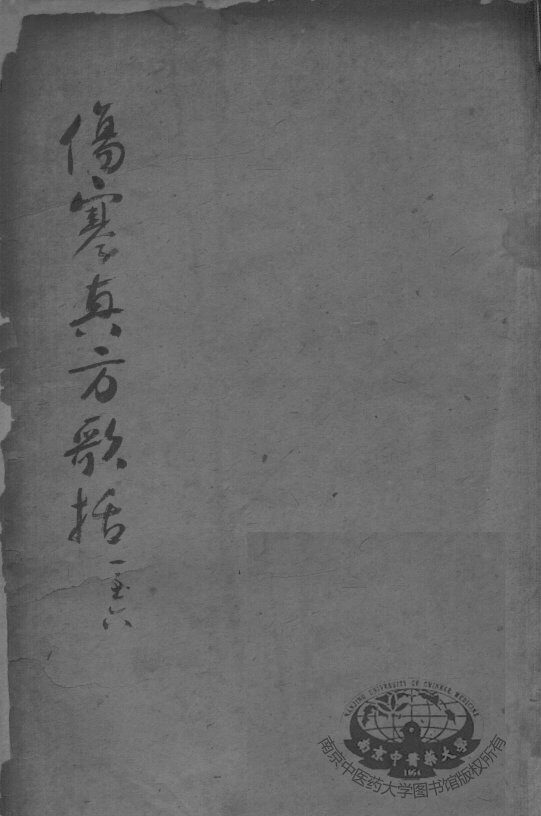 傷寒真方歌括 一至六
NANJING UNIVERSITY OF CHINESE MEDICINE
南京中醫藥大学
1954
南京中医药大学图书馆版权所有